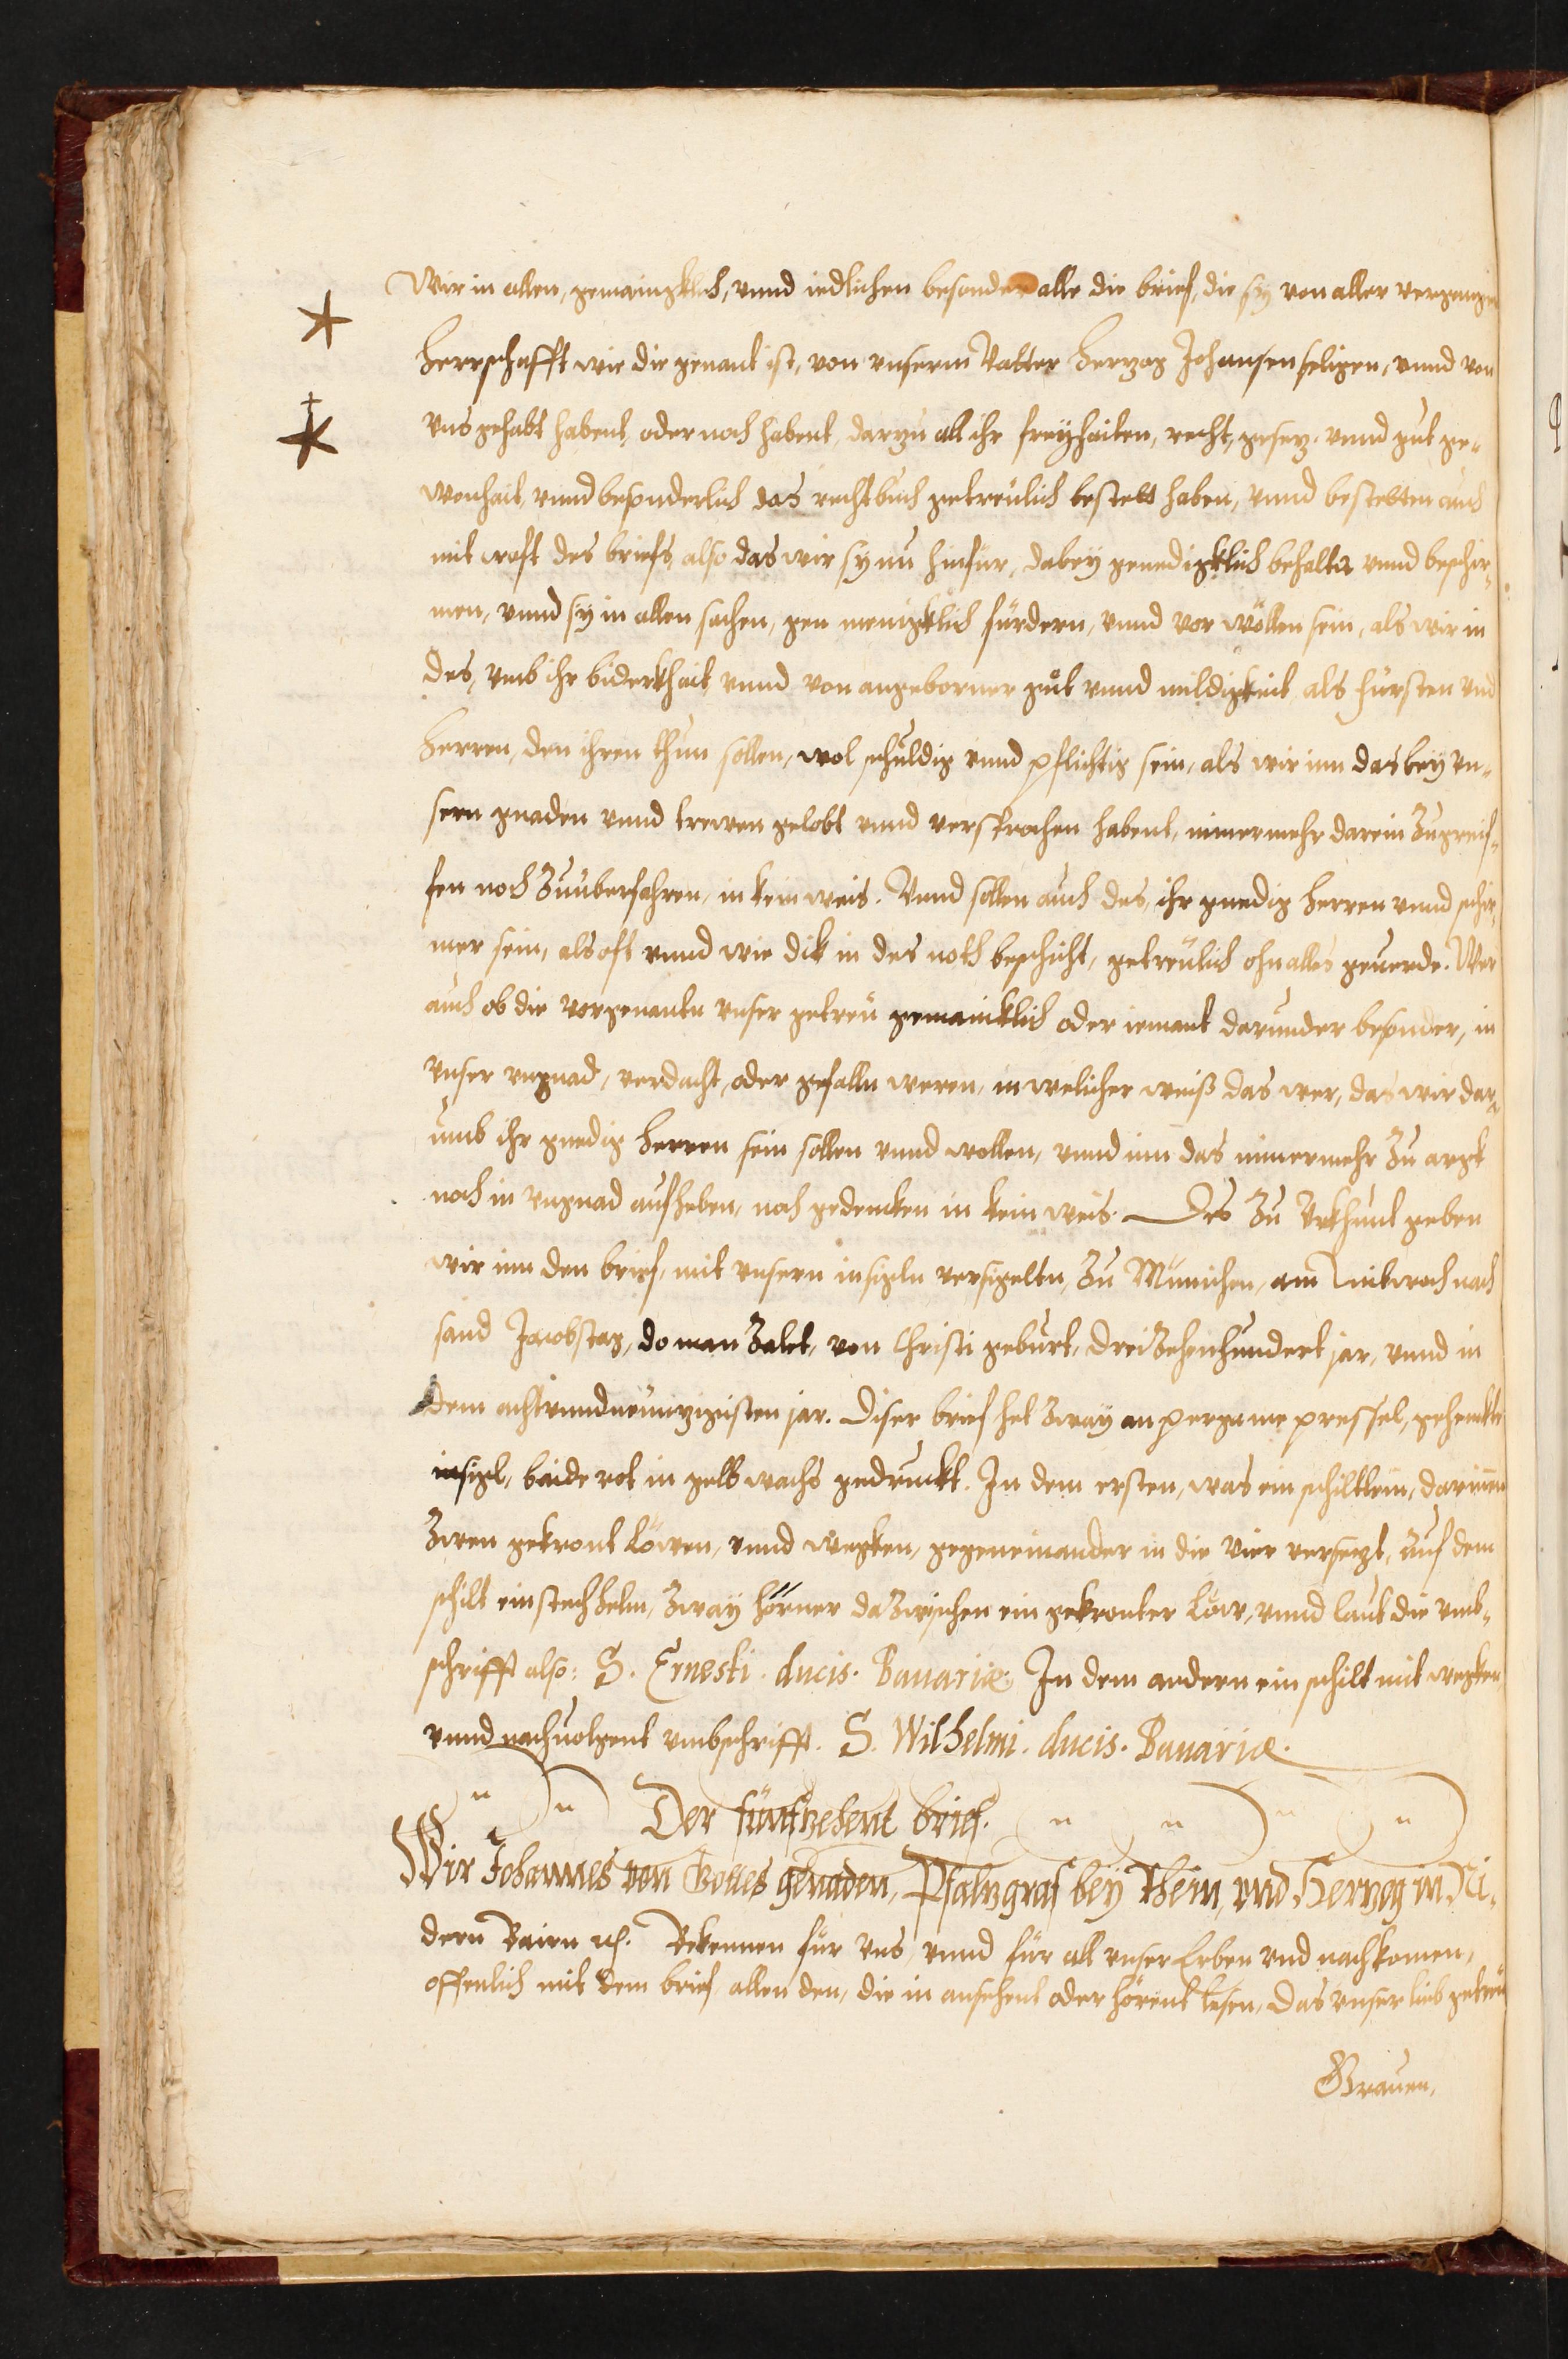 Wir in allen, gemaingklich, vnnd iedlichen besonder alle die brief, die sy von aller vergangen
herrschafft wie die genant ist, von vnserm Vatter Herzog Johansen seligen, vnnd von
vns gehabt habent, oder noch habent, darzu all ihr freyhaiten, recht, gesez vnnd gut ge-
wonhait, vnnd besonderlich das rechtbuch getreulich bestett haben, vnnd bestetten auch
mit craft des briefs, also das wir sy nu hinfür, dabey genedigklich behalten vnnd beschir-
men, vnnd sy in allen sachen, gen menigklich fürdern, vnnd vor wöllen sein, als wir in
des, vmb ihr biderkhait vnnd von angeborner güt vnnd mildigkeit, als fürsten vnd
herren, den ihren thun sollen, wol schuldig vnnd pflichtig sein, als wir inn das bey vn-
sern gnaden vnnd trewen gelobt vnnd versprochen habent, nimermehr darein zugreif-
fen noch zuuberfahren, in kein weis. Vnnd sollen auch des, ihr gnedig herren vnnd schir-
mer sein, als oft vnnd wie dik in des noth beschicht, getreulich ohn alles geuerde. Wer
auch ob die vorgenanten vnser getreu gemaincklich oder iemant darunder besonder, in
vnser vngnad, verdacht, oder gefalln weren, in welicher weiß das wer, das wir dar-
umb ihr gnedig herren sein sollen vnnd wollen, vnnd inn das nimermehr zu argk
noch in vngnad aufheben, noch gedencken in kein weis. Des zu Vrkhunt geben
wir inn den brief, mit vnsern insigln versigelten, zu Münichen, am Mitwoch nach
sand Jacobstag, do man zalt, von Christi geburt, dreizehenhundert jar, vnnd in
dem achtvnndneunzigisten jar. Diser brief het zway an pergamene pressel, gehenckte
insigl, baide rot in gelb wachs gedruckt. In dem ersten, was ein schiltlein, darinnen
zwen gekront Löwen, vnnd wegken, gegeneinander in die vier versezt, auf dem
schilt ein stechhelm, zway hörner dazwischen ein gekronter Löw, vnnd laut die vmb-
schrifft also: S. Ernesti. ducis. Bauariæ. In dem andern ein schilt mit wegken,
vnnd nachuolgent vmbschrifft. S. Wilhelmi. ducis. Bauariæ.
Der fünfzehent brief.
Wir Johannes von Gottes genaden, Pfalzgraf bey Rhein, vnd Herzog in Ni-
dern Bairn ec. Bekennen für vns, vnnd für all vnser Erben vnd nachkomen,
offenlich mit dem brief, allen den, die in ansehent oder hörent lesen, Das vnser lieb getreu
Grauen,